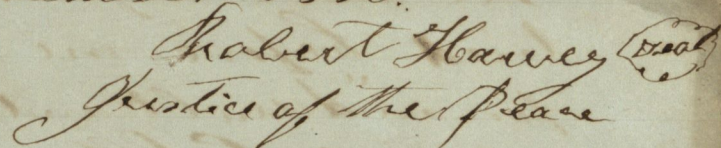 Robert Harvey Seal
Justice of the Peace